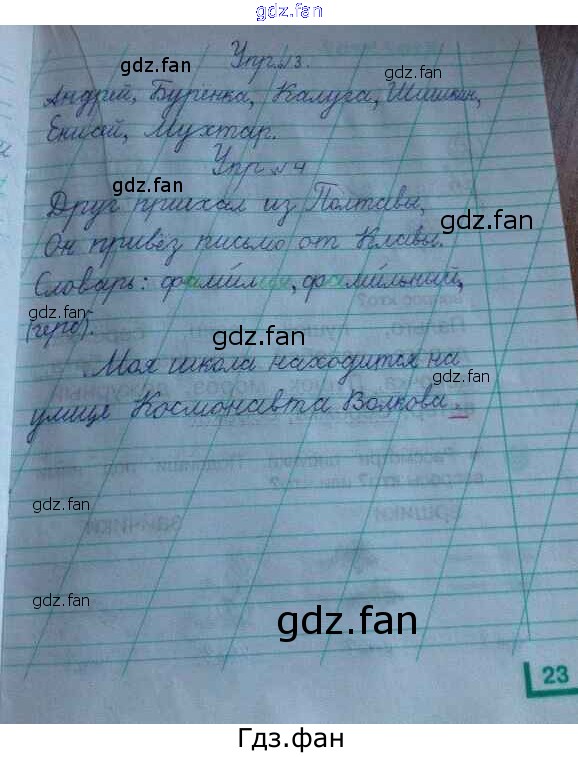 gdz.fan
Упр.13.
gdz.fan
gdz.fan
Андрей, Бурёнка, Калуга, Шишкин,
Енисей, Мухтар.
Упр. 14
gdz.fan
Друг приехал из Полтавы,
gdz.fan
Он привёз письмо от Клавы.
Словарь: фамилия, фамильный,
(герб).
gdz.fan
Моя школа находится на
gdz.fan
улице Космонавта Волкова.
gdz.fan
gdz.fan
gdz.fan
23
Гдз.фан